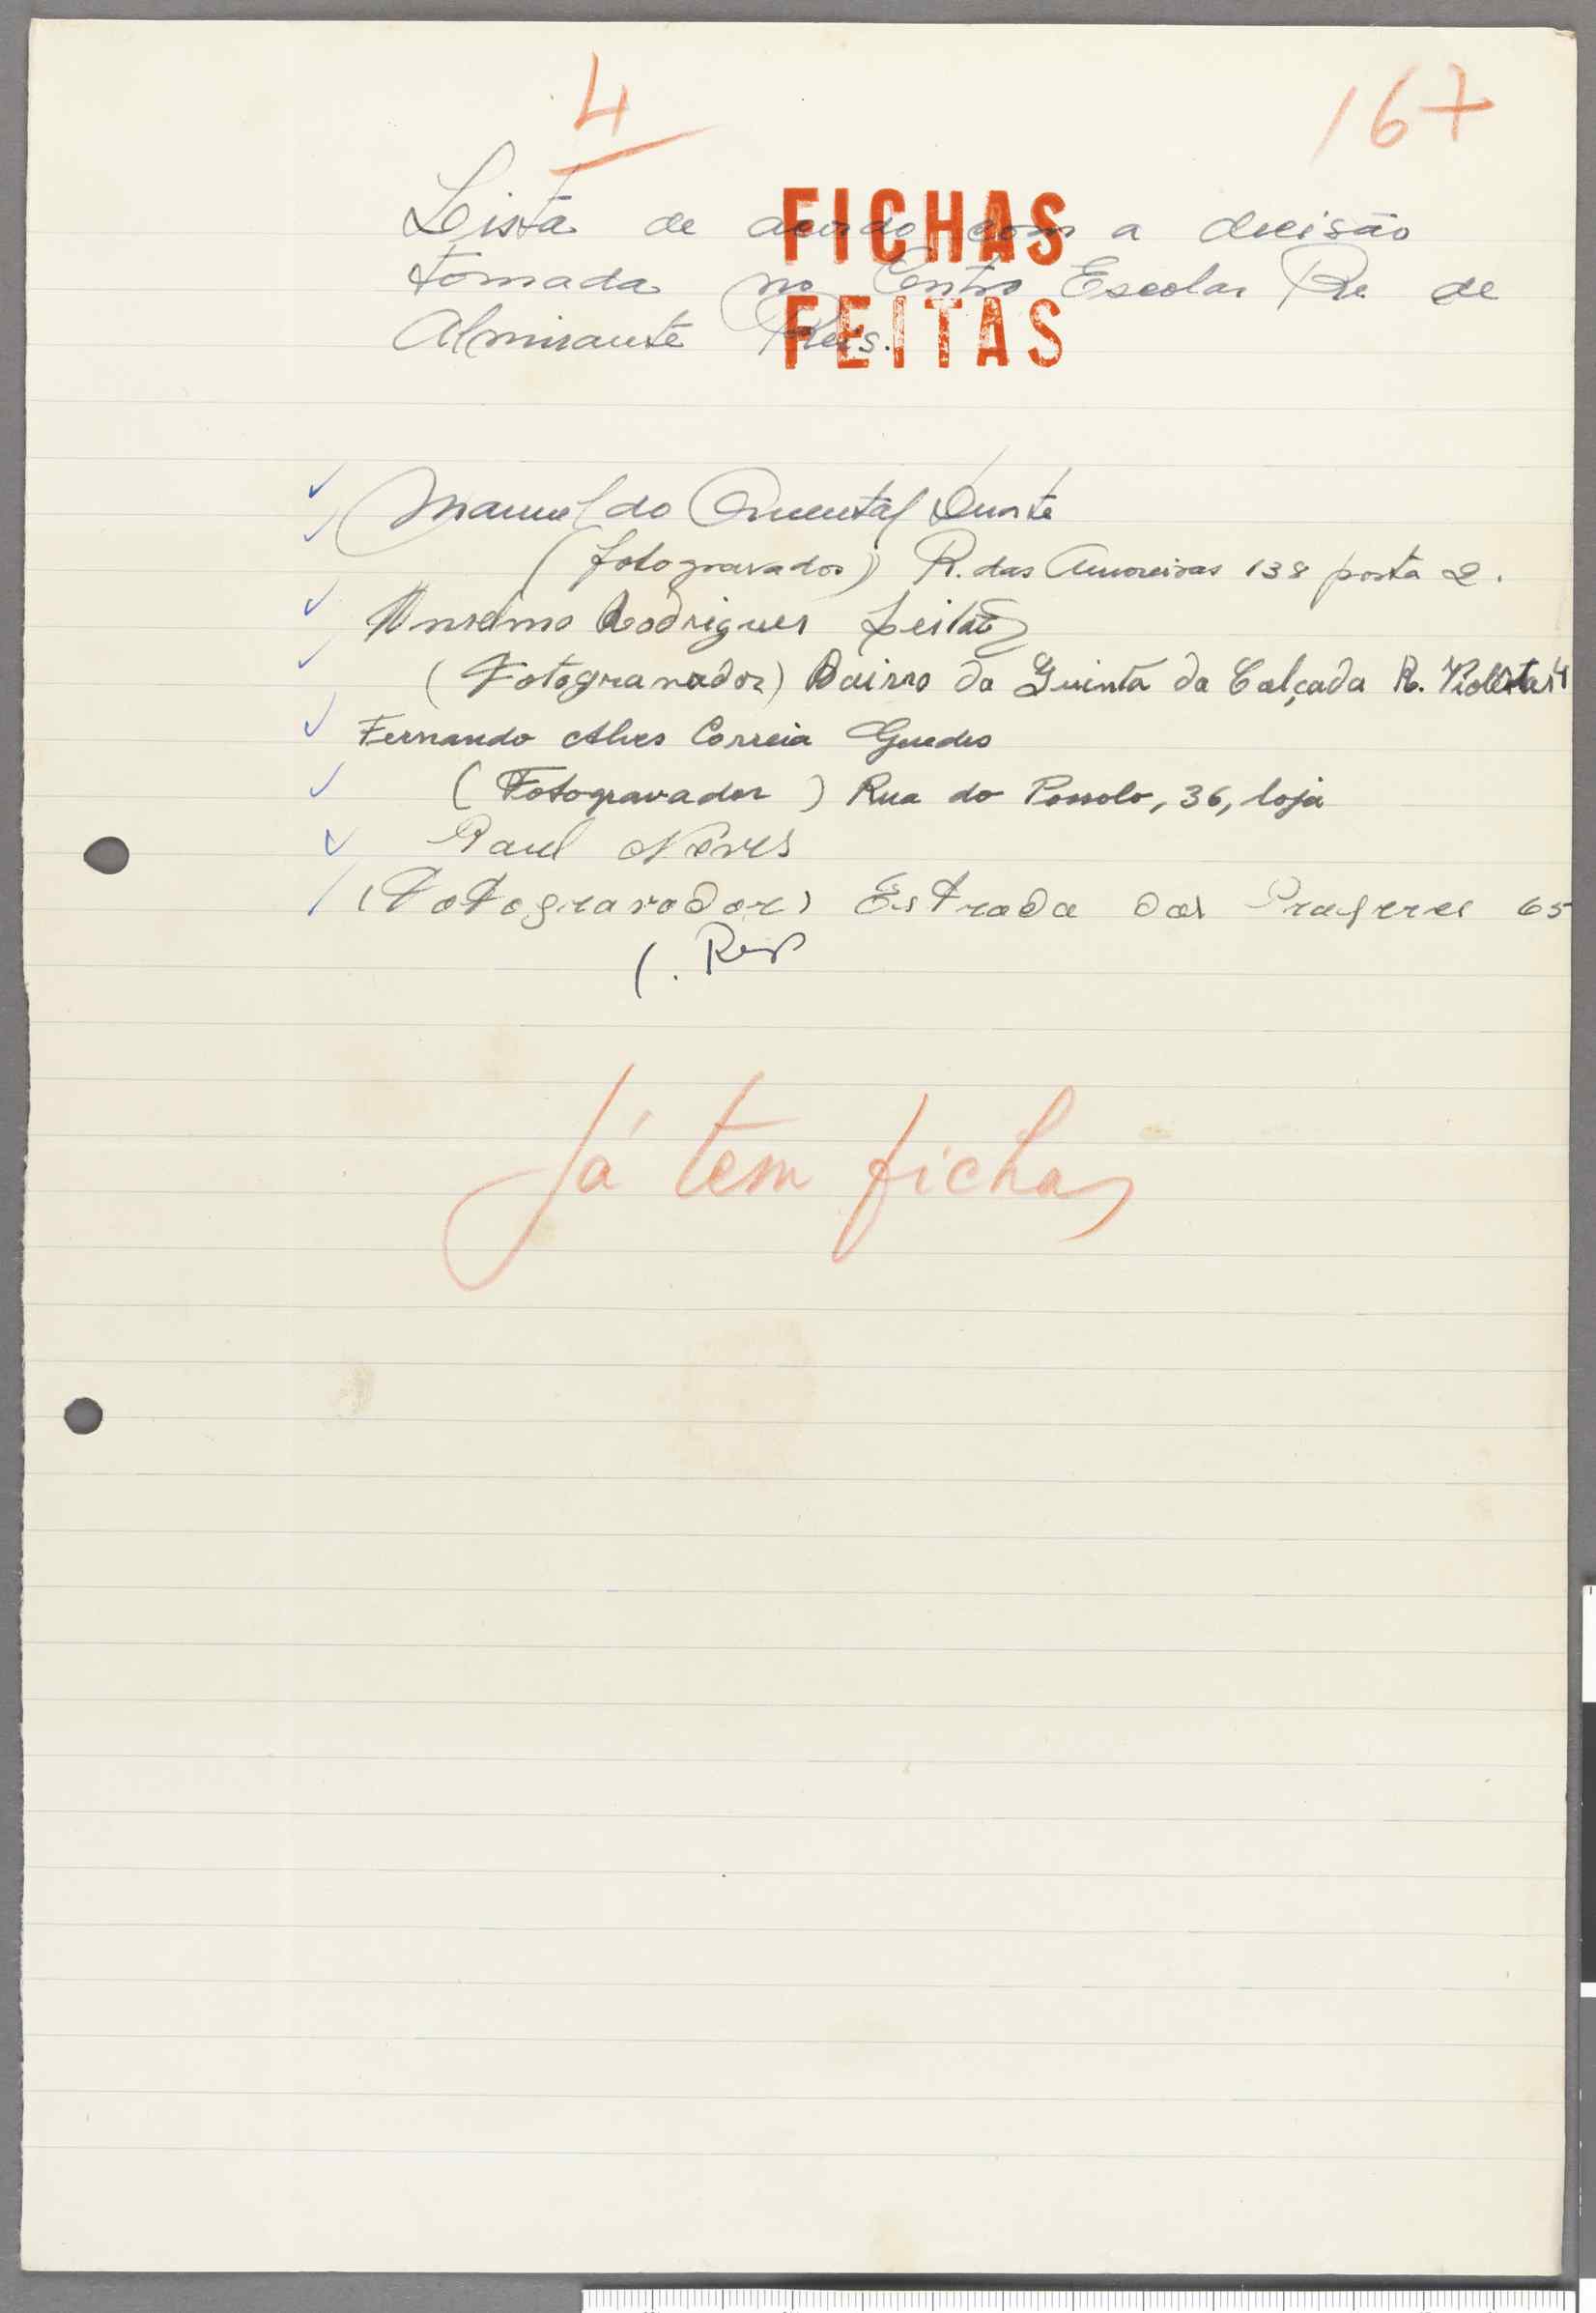 4
167
Lista de acordo com a decisão
FICHAS
tomada no Centro Escolar Re. de
FEITAS
Almirante Reis.
Manuel do Quental Duarte
(fotogravador) R. das Amoreiras 138 porta 2.
Anselmo Rodrigues Leitão
(Fotogravador) Bairro da Quinta da Calçada R. Violetas 4
Fernando Alves Correia Guedes
(Fotogravador) Rua do Possolo, 36, loja
Raul Neves
(Fotogravador) Estrada dos Prazeres 65
Já tem fichas